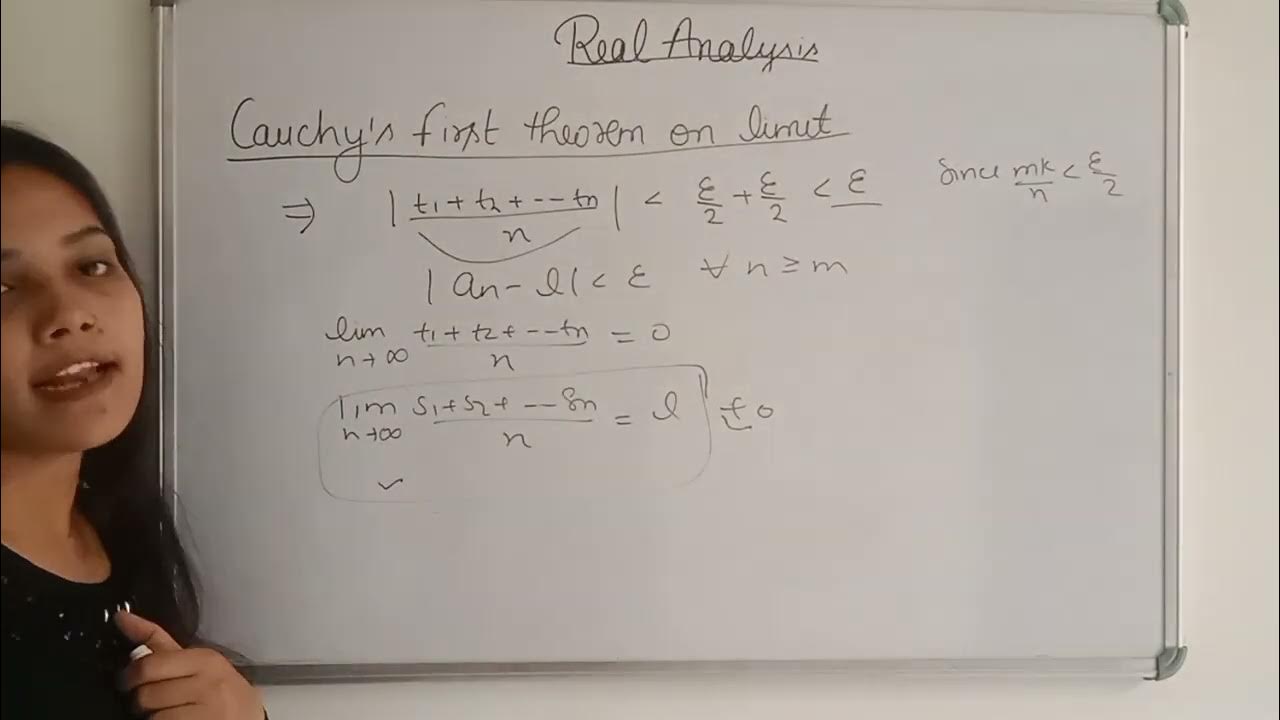 Real Analysis
Cauchy's first theorem on limit
⇒ | t1 + t2 + -- tn / n | < ε/2 + ε/2 < ε since mk/n < ε/2
| an - l | < ε ∀ n ≥ m
lim n→∞ t1 + t2 + -- tn / n = 0
lim n→∞ s1 + s2 + -- sn / n = l + 0